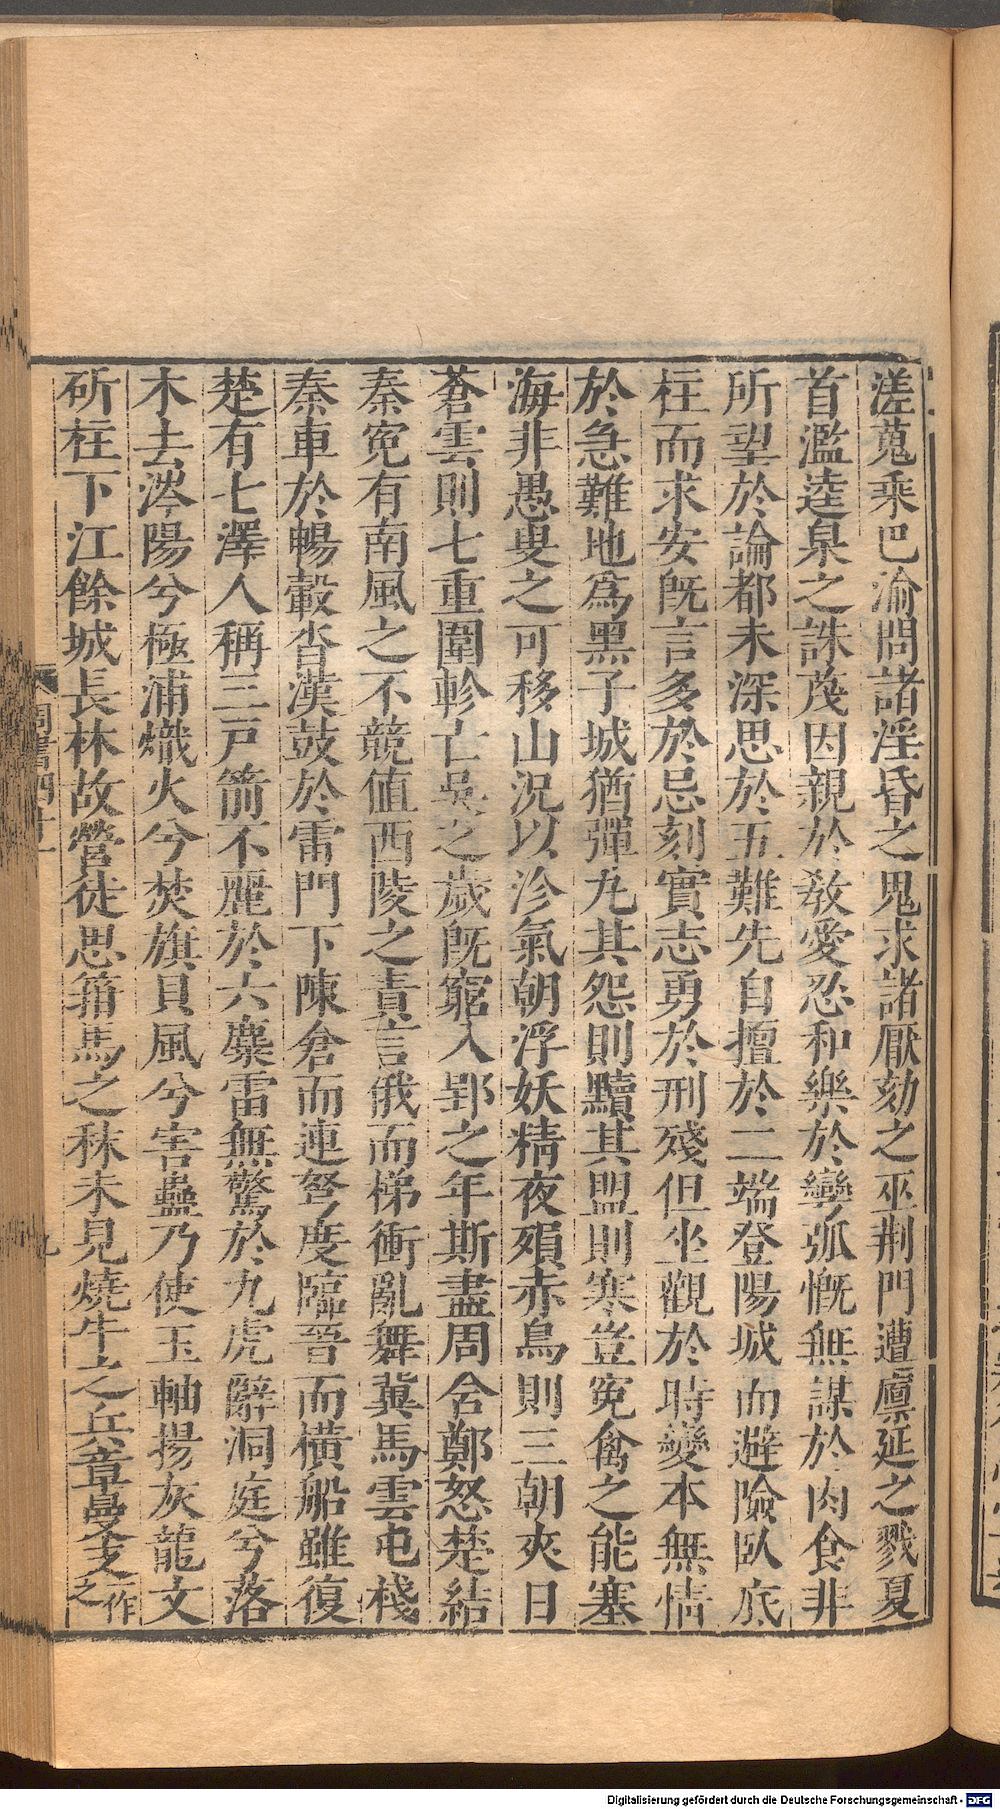 溠蒐乘巴渝問諸淫昏之鬼求諸厭劾之巫荆門遭廩延之戮夏
首濫逵泉之誅蔑因親於敎愛忍和樂於彎弧慨無謀於肉食非
所望於論都未深思於五難先自擅於二端登陽城而避險臥底
柱而求安旣言多於忌刻實志勇於刑殘但坐觀於時變本無情
於急難地爲黑子城猶彈丸其怨則黷其盟則寒豈寃禽之能塞
海非愚叟之可移山況以沴氣朝浮妖精夜殞赤烏則三朝夾日
蒼雲則七重圍軫亡吳之歲旣窮入郢之年斯盡周含鄭怒楚結
秦寃有南風之不競値西陵之責言俄而梯衝亂舞冀馬雲屯棧
秦車於暢轂沓漢鼓於雷門下陳倉而連弩度臨晉而橫船雖復
楚有七澤人稱三戸箭不麗於六麋雷無驚於九虎辭洞庭兮落
木去涔陽兮極浦熾火兮焚旗貝風兮害蠱乃使玉軸揚灰龍文
斫柱下江餘城長林故營徒思箝馬之秣未見燒牛之兵章曼支一作之
周書四十一
九
Digitalisierung gefördert durch die Deutsche Forschungsgemeinschaft - DFG